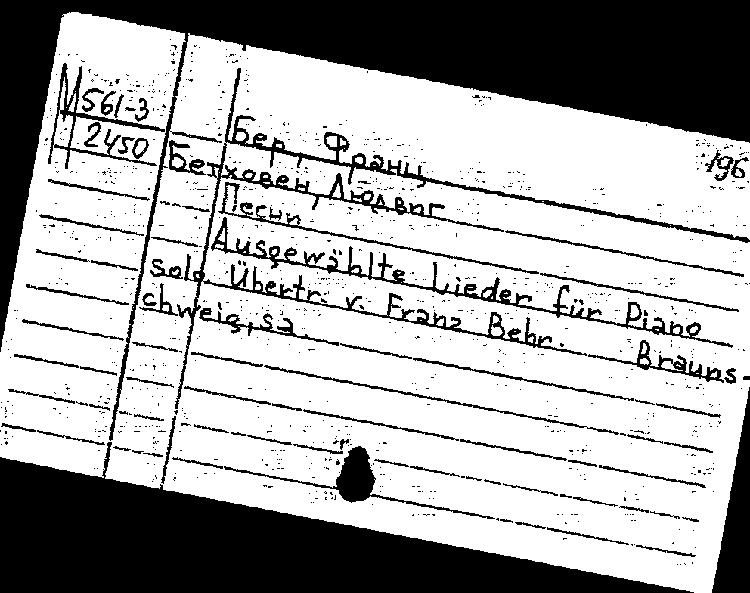 М 561-3
2450
196
Бер, Франц
Бетховен, Людвиг
Песни
Ausgewählte Lieder für Piano
solo Übertr. v. Franz Behr. Brauns-
chweig, sa